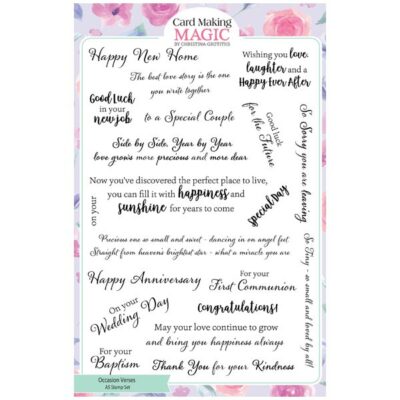 Card Making
MAGIC
BY CHRISTINA GRIFFITHS
Happy New Home
Wishing you love,
laughter and a
Happy Ever After
The best love story is the one
you write together
Good Luck
in your
new job
to a Special Couple
Good luck
for the Future
So Sorry you are leaving
Side by Side, Year by Year
love grows more precious and more dear
Now you've discovered the perfect place to live,
you can fill it with happiness and
sunshine for years to come
on your
Special Day
Precious one so small and sweet - dancing in on angel feet
Straight from heaven's brightest star - what a miracle you are
So Tiny - so small and loved by all!
Happy Anniversary
For your
First Communion
On your
Wedding Day
Congratulations!
May your love continue to grow
and bring you happiness always
For your
Baptism
Thank You for your Kindness
Occasion Verses
A5 Stamp Set